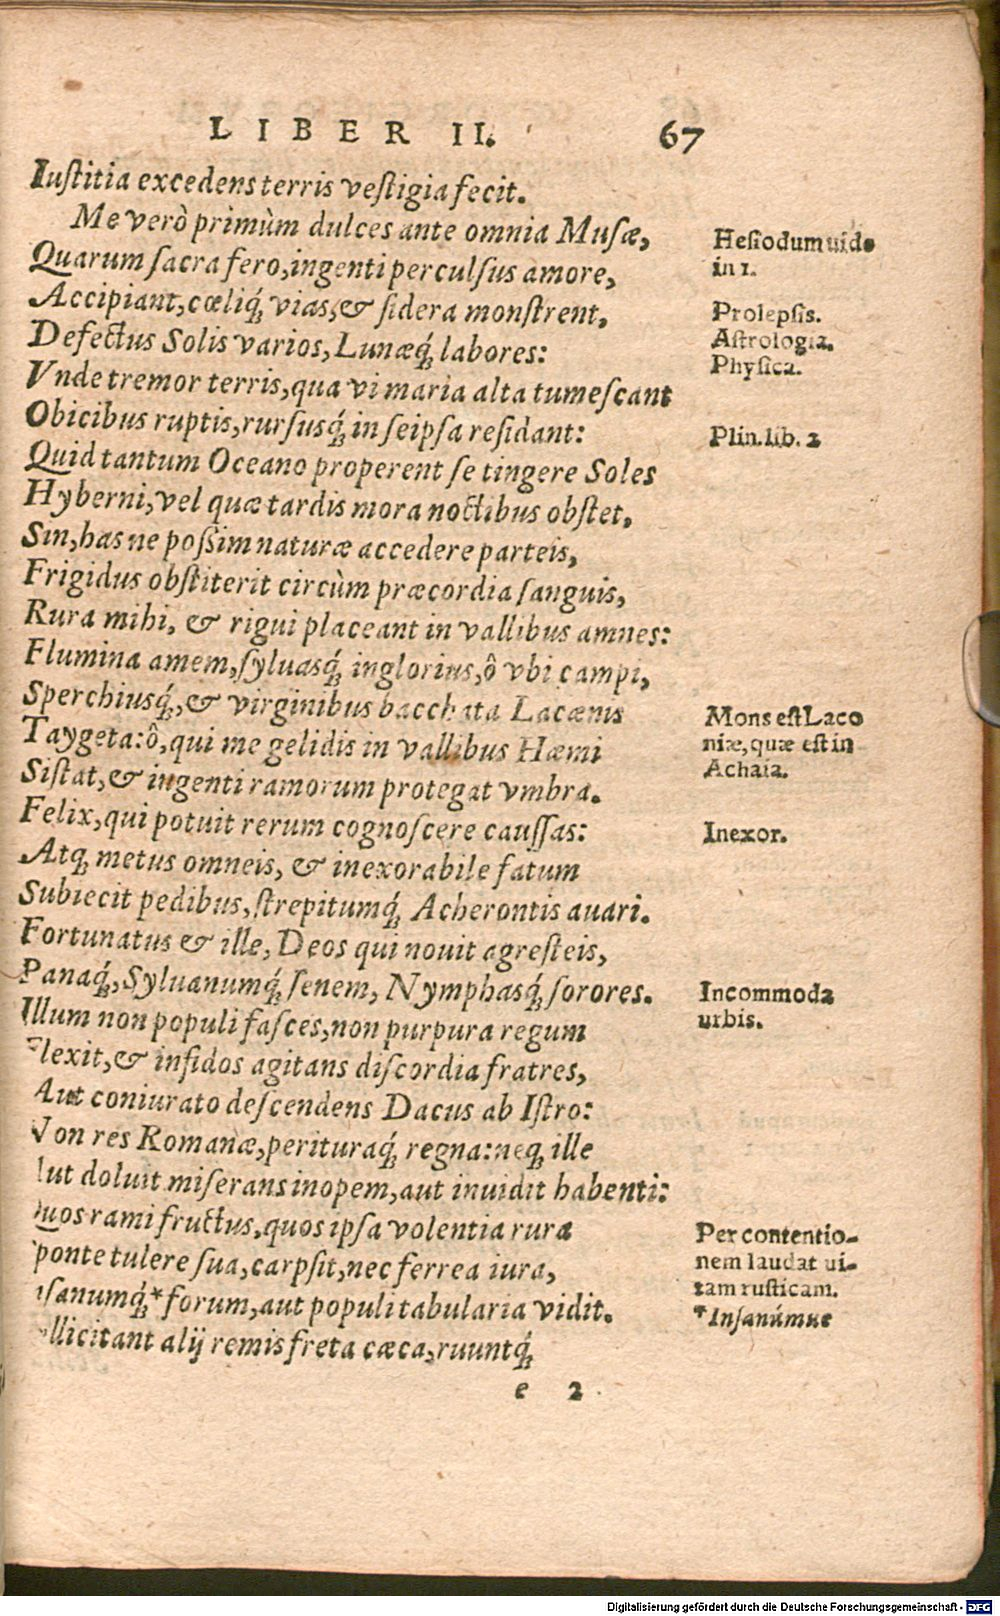 LIBER II. 67
Iuſtitia excedens terris veſtigia fecit.
Me verò primùm dulces ante omnia Muſæ,
Quarum ſacra fero, ingenti perculſus amore,
Accipiant, cœliq́; vias, & ſidera monſtrent,
Defectus Solis varios, Lunæq́; labores:
Vnde tremor terris, qua vi maria alta tumeſcant
Obicibus ruptis, rurſusq́; in ſeipſa reſidant:
Quid tantum Oceano properent ſe tingere Soles
Hyberni, vel quæ tardis mora noctibus obſtet.
Sin, has ne poſſim naturæ accedere parteis,
Frigidus obſtiterit circùm præcordia ſanguis,
Rura mihi, & rigui placeant in vallibus amnes:
Flumina amem, ſyluasq́; inglorius, ô vbi campi,
Sperchiusq́;, & virginibus bacchata Lacænis
Taygeta: ô, qui me gelidis in vallibus Hæmi
Siſtat, & ingenti ramorum protegat vmbra.
Felix, qui potuit rerum cognoſcere cauſſas:
Atq; metus omneis, & inexorabile fatum
Subiecit pedibus, ſtrepitumq́; Acherontis auari.
Fortunatus & ille, Deos qui nouit agreſteis,
Panaq́;, Syluanumq́; ſenem, Nymphasq́; ſorores.
Illum non populi faſces, non purpura regum
Flexit, & infidos agitans diſcordia fratres,
Aut coniurato deſcendens Dacus ab Iſtro:
Non res Romanæ, perituraq́; regna: neq; ille
Aut doluit miſerans inopem, aut inuidit habenti:
Quos rami fructus, quos ipſa volentia rura
ponte tulere ſua, carpſit, nec ferrea iura,
nſanumq́;* forum, aut populi tabularia vidit.
ollicitant alij remis freta cæca, ruuntq́;
e 2
Heſiodum uide
in 1.
Prolepſis.
Aſtrologia.
Phyſica.
Plin. lib. 2
Mons eſt Laco
niæ, quæ eſt in
Achaia.
Inexor.
Incommoda
urbis.
Per contentio-
nem laudat ui-
tam ruſticam.
*Inſanúmue
Digitalisierung gefördert durch die Deutsche Forschungsgemeinschaft - DFG